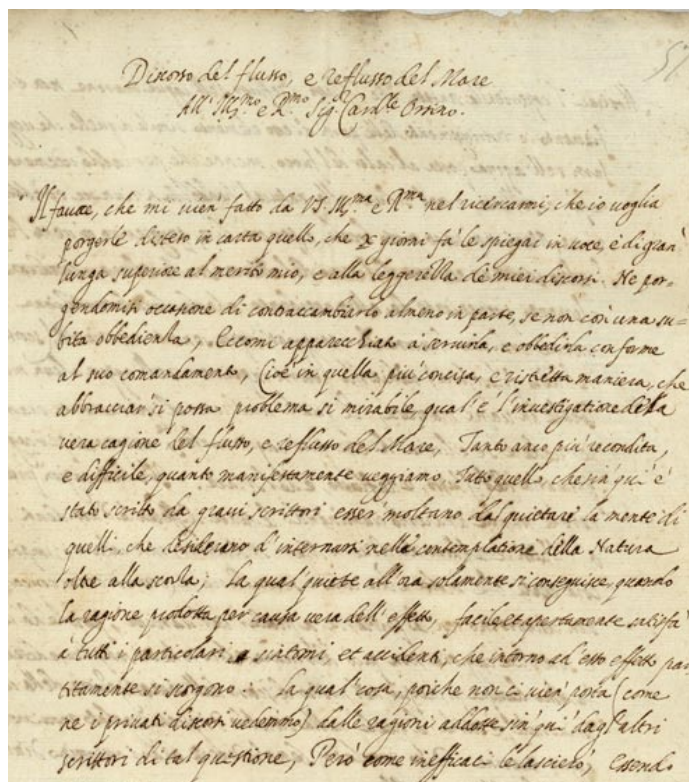 57
Discorso del flusso, e reflusso del Mare
All' Ill.mo e R.mo Sig.r Card.le Orsino.
Il favore, che mi vien fatto da VS. Ill.ma e R.ma nel ricercarmi, che io voglia
porgerle disteso in carta quello, che x giorni fà le spiegai in voce, è di gran
lunga superiore al merito mio, e alla leggerezza de miei discorsi. Ne por=
gendomisi occasione di contraccambiarlo almeno in parte, se non con una su=
bita obbedienza, Eccomi apparecchiato à servirla, e obbedirla conforme
al suo comandamento, Cioè in quella più concisa, e ristretta maniera, che
abbracciar si possa problema si mirabile, qual' è l'investigatione della
vera cagione del flusso, e reflusso del Mare, Tanto anco più recondita,
e difficile, quanto manifestamente veggiamo Tutto quello, che sin' quì è
stato scritto da gravi scrittori esser' molto lontano dal quietare la mente di
quelli, che desiderano d'internarsi nella contemplatione della Natura
oltre alla scorza; La qual' quiete all'ora solamente si conseguisce, quando
la ragione prodotta per causa vera dell' effetto, facile et apertamente satisfà
à tutti i particolari sintomi, et accidenti, che intorno ad' esso effetto par
titamente si scorgono. La qual' cosa, poiche non ci vien' porta (come
ne i privati discorsi vedemmo) dalle ragioni addotte sin' quì dagl' altri
scrittori di tal questione, Però come inefficaci le lascierò, Essendo